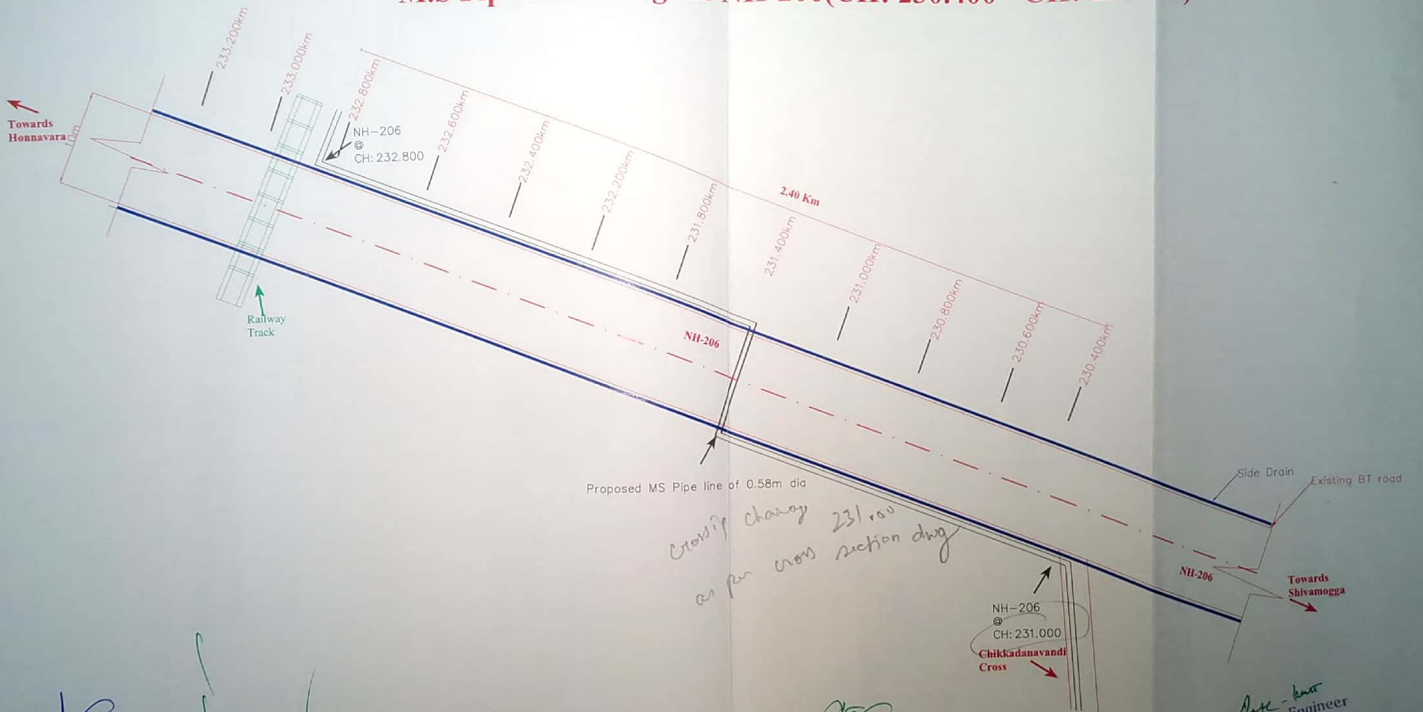 NH-206(CH: 230.400
233.200km
233.000km
232.800km
232.600km
232.400km
232.200km
231.800km
231.400km
231.000km
230.800km
230.600km
230.400km
Towards
Honnavara
10m
NH-206
@
CH: 232.800
2.40 Km
Railway
Track
NH-206
Proposed MS Pipe line of 0.58m dia
as per cross section dwg
Side Drain
Existing BT road
NH-206
Towards
Shivamogga
NH-206
@
CH: 231.000
Chikkadanavandi
Cross
Engineer